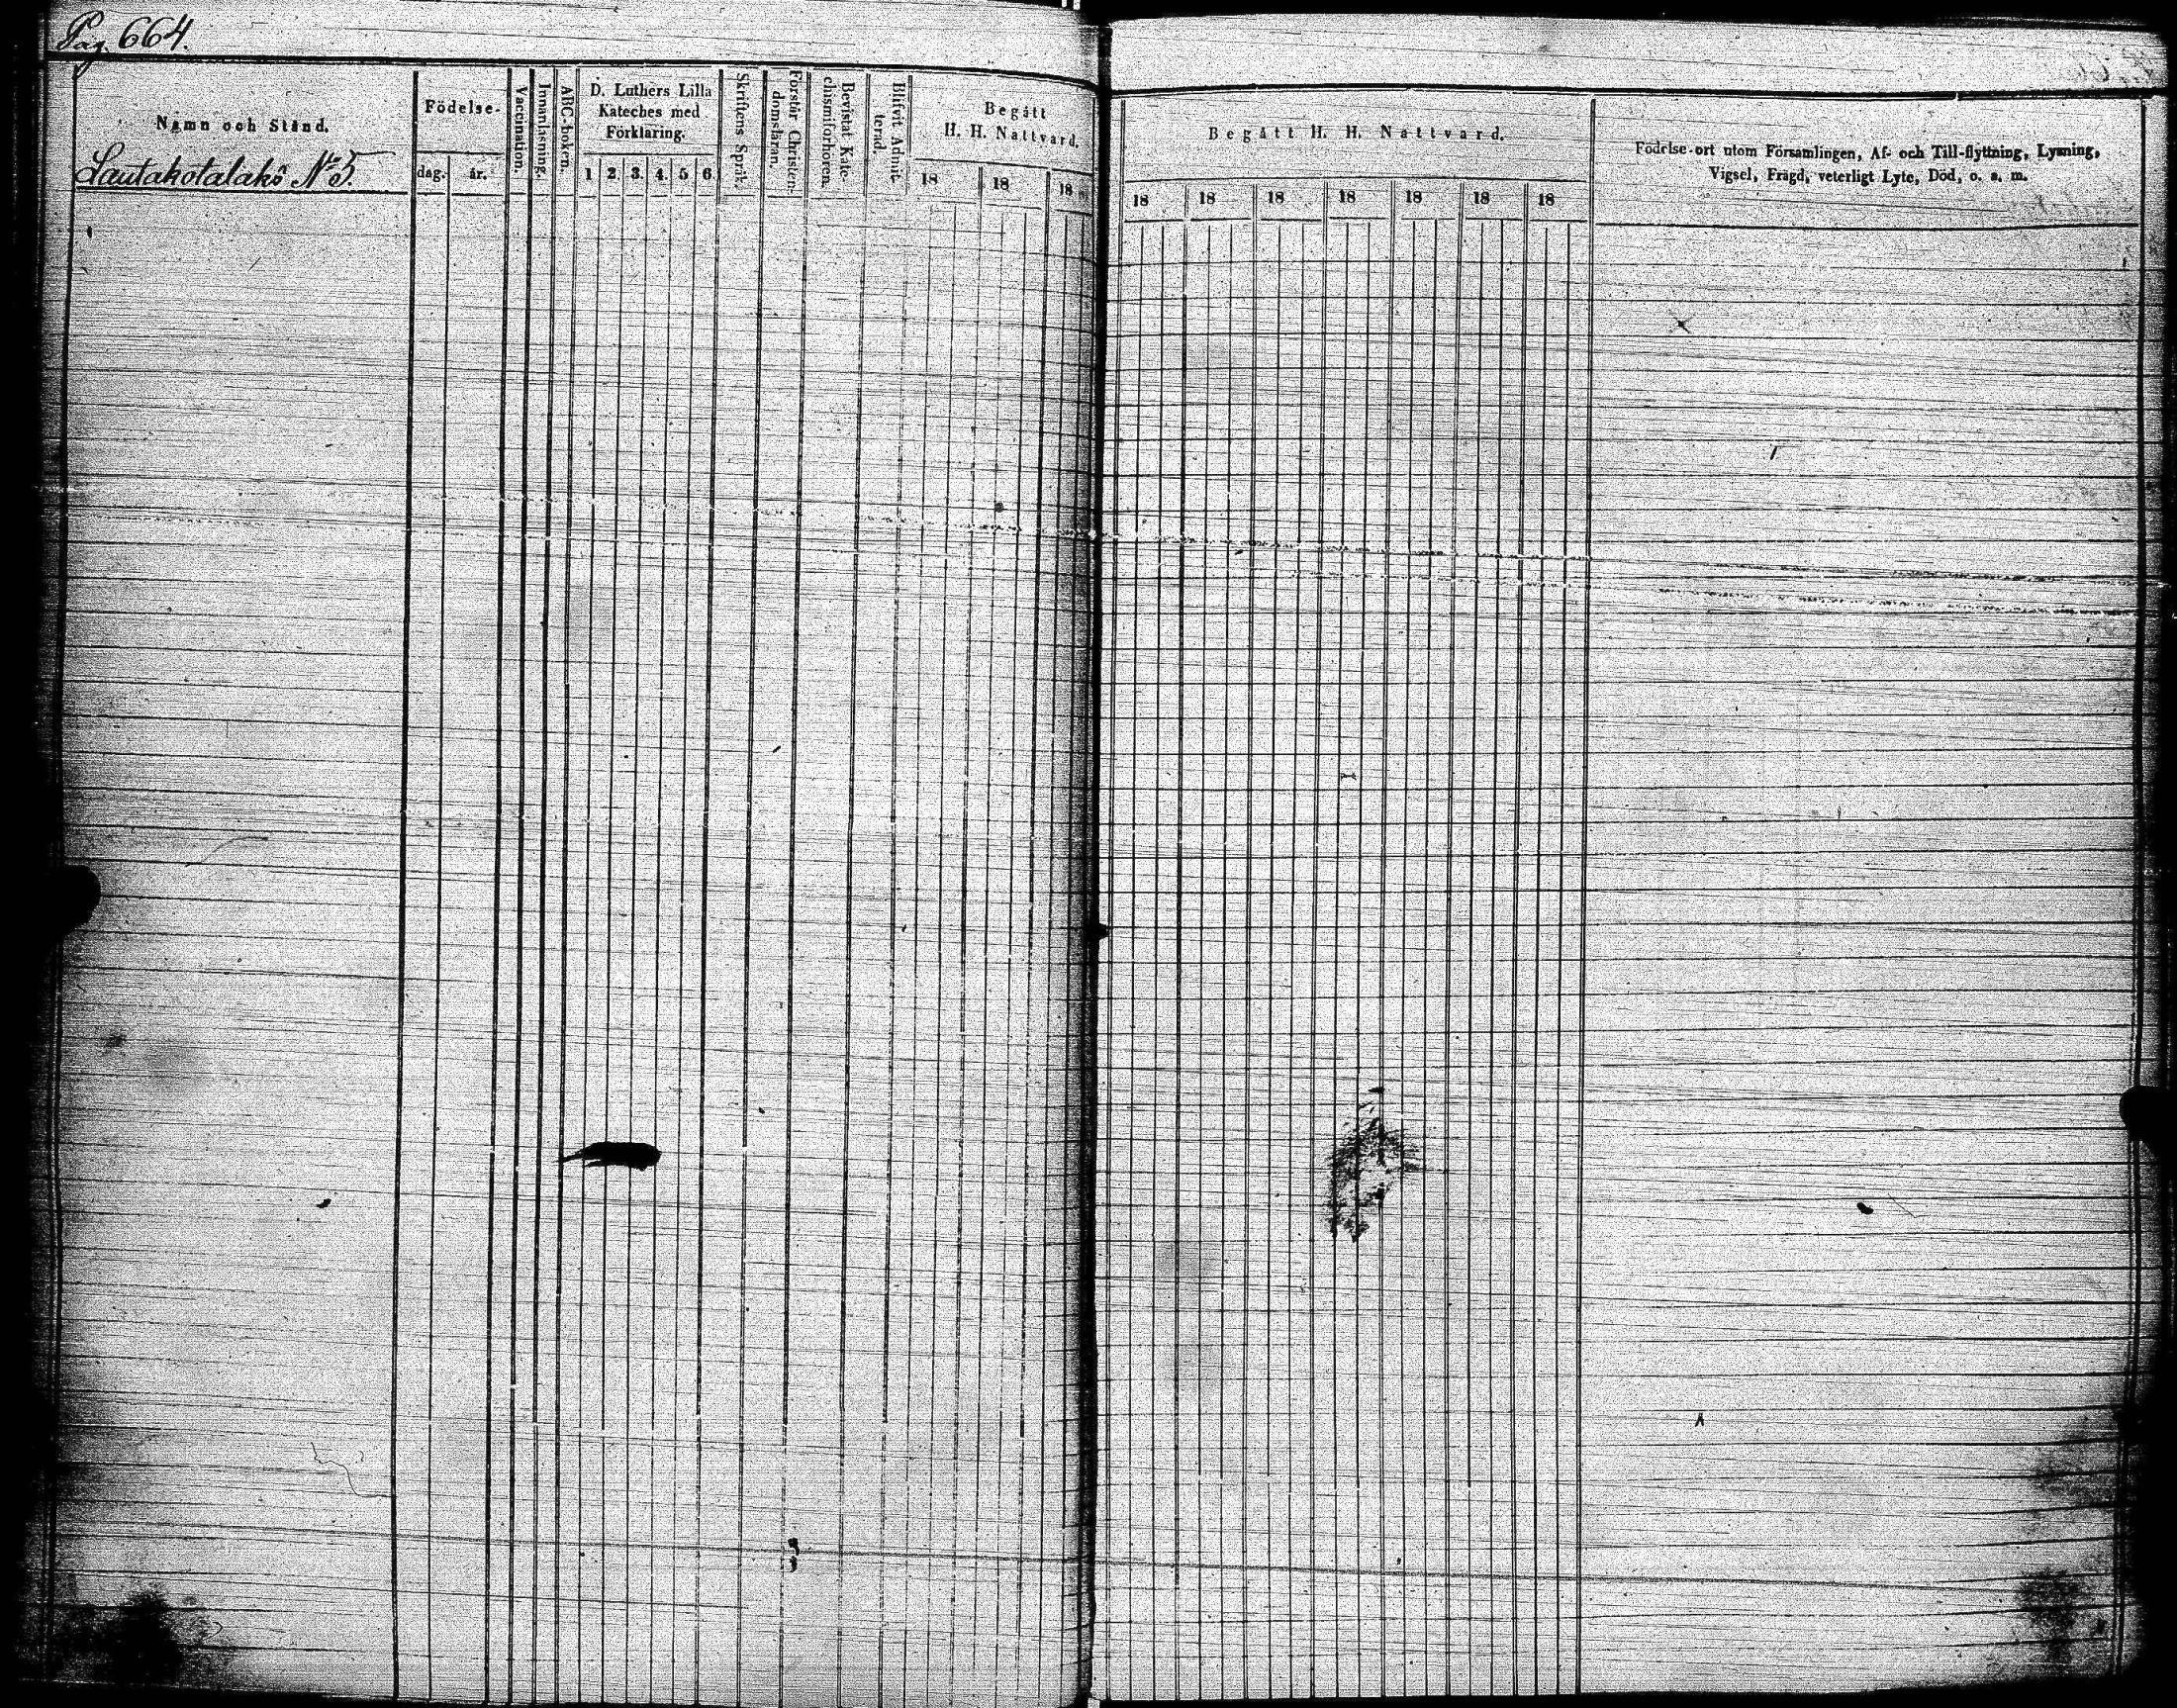 Pag. 664.
Namn och Stånd.
Lautakotalakö No 3.
Födelse-
dag.
år.
Vaccination.
Innanläsning.
ABC-boken.
D. Luthers Lilla
Kateches med
Förklaring.
1 2. 3. 4. 5 6.
Skriftens Språk.
Förstår Christen-
domsläran.
Bevistat Kate-
chismiförhören.
Blifvit Admit-
terad.
Begått
H. H. Nattvard.
18 18 18
Begått H. H. Nattvard.
18 18 18 18 18 18 18
Födelse-ort utom Församlingen, Af- och Till-flyttning, Lysning,
Vigsel, Frägd, veterligt Lyte, Död, o. s. m.